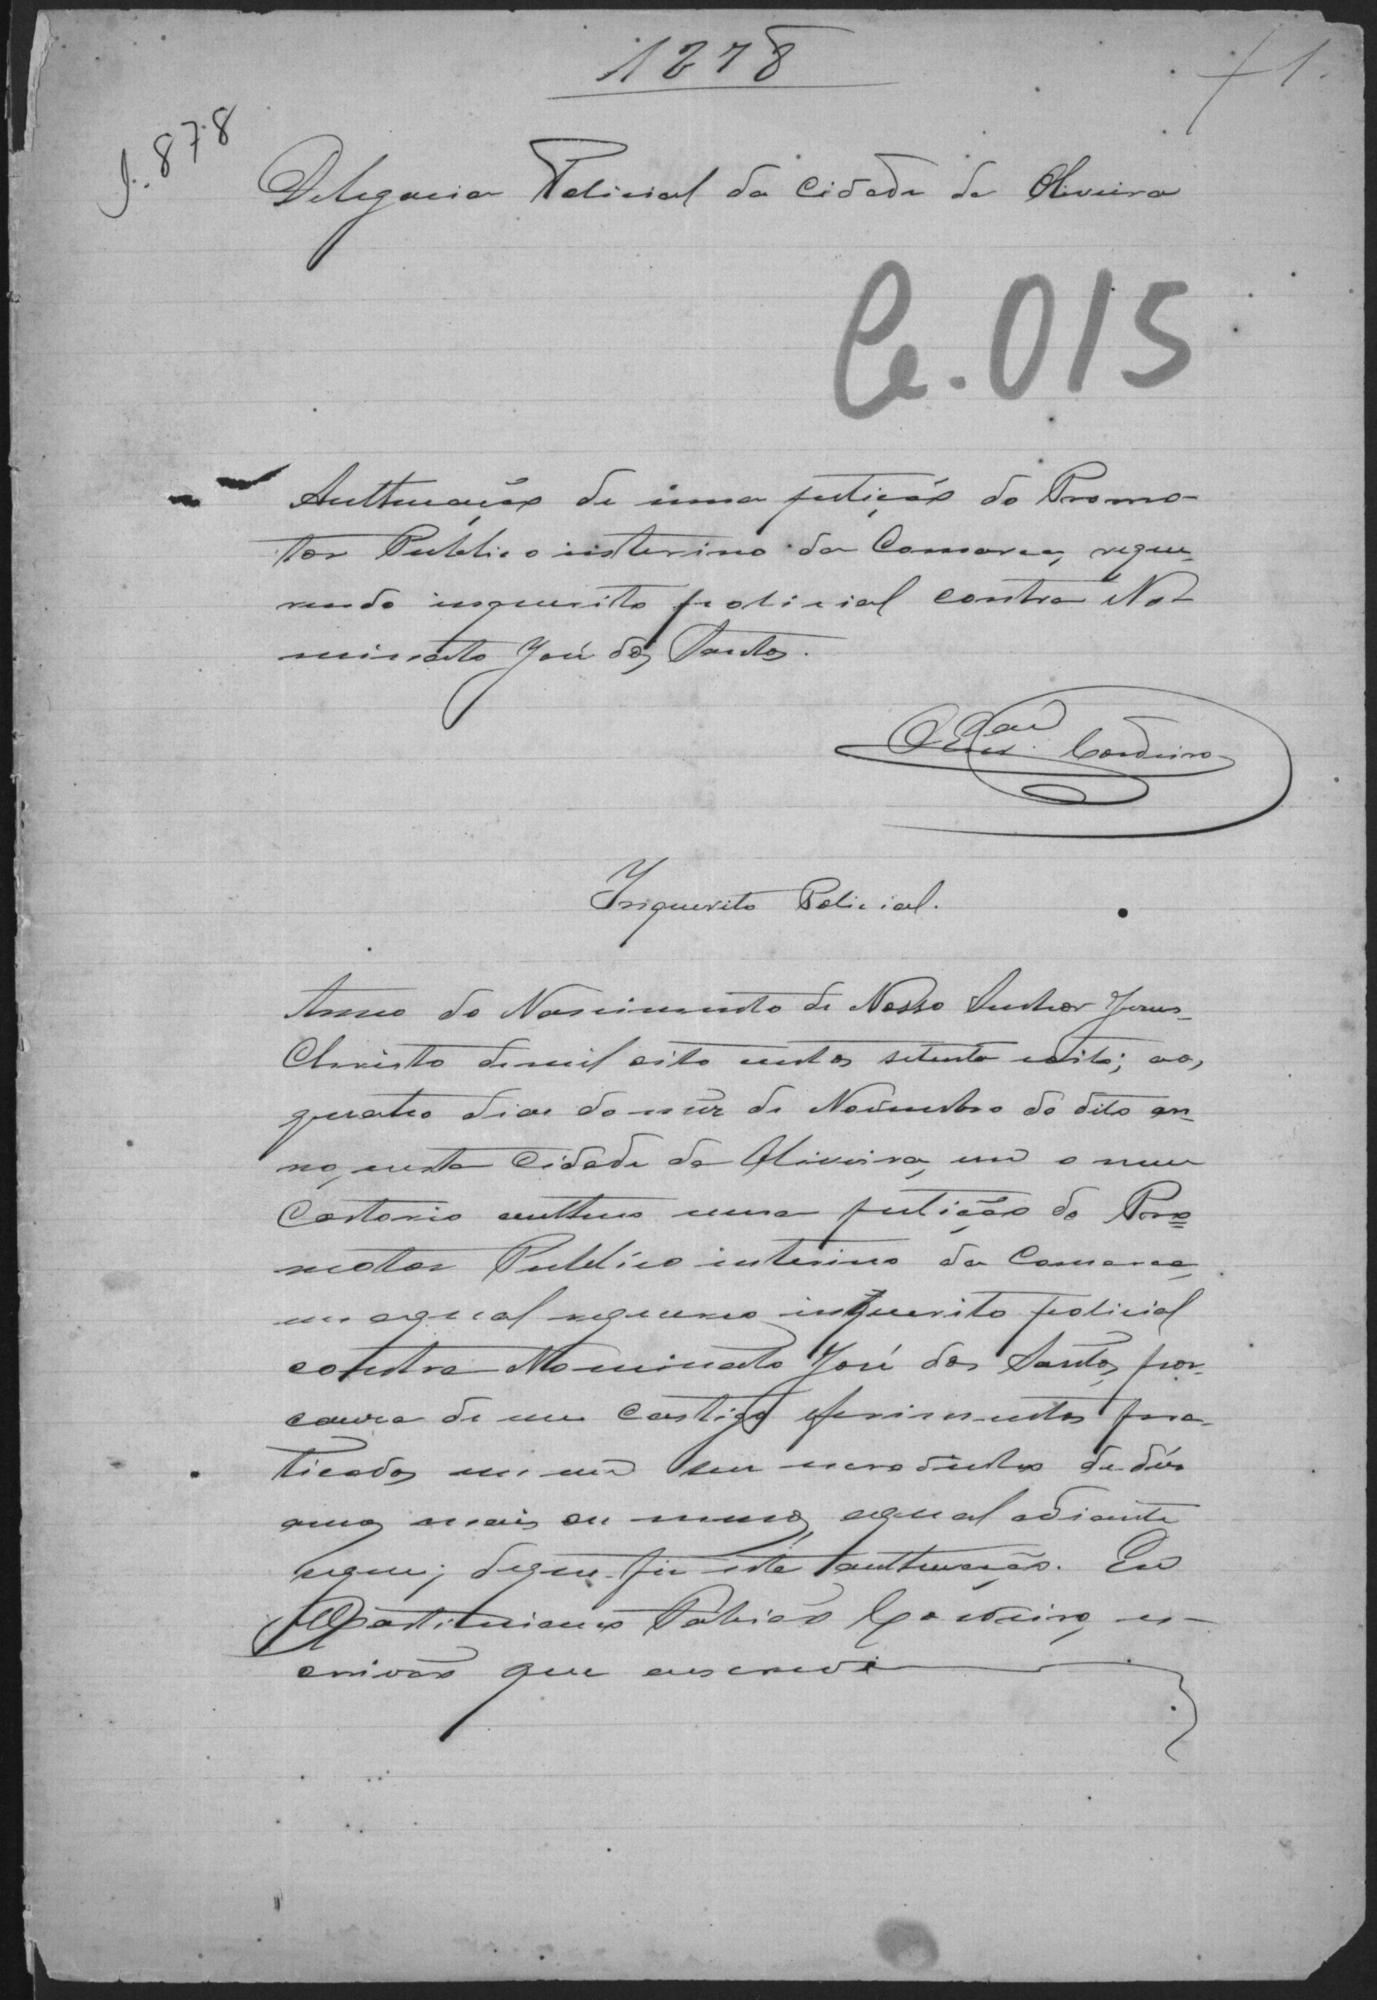 1878
f 1.
J. 878
Delegacia Policial da Cidade de Oliveira
Ce. 015
Authuação de uma petição do Promo-
tor Publico interino da Comarca, reque-
rendo inquerito policial contra No-
minato José dos Santos.
Cordeiro
Inquerito Policial.
Anno do Nascimento de Nosso Senhor Jesus
Christo de mil oito centos setenta e oito; aos
quatro dias do mez de Novembro do dito an-
no, nesta Cidade de Oliveira, em o meu
Cartorio authuo uma petição do Pro=
motor Publico interino da Comarca,
em a qual requereo inquerito policial
contra Nominato José dos Santos, por
causa de um castigo e ferimentos pra-
ticados em um seu de dós
annos mais ou menos, a qual adiante
segue; de que fiz esta authuação. Eu
Cordeiro, es-
crivão que escrevi